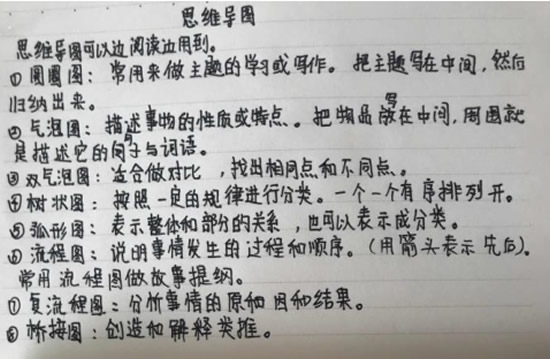 思维导图
思维导图可以边阅读边用到。
①圆圈图：常用来做主题的学习或写作。把主题写在中间，然后
归纳出来。
②气泡图：描述事物的性质或特点。把物品写在中间，周围就
是描述它的句子与词语。
③双气泡图：适合做对比，找出相同点和不同点。
④树状图：按照一定的规律进行分类。一个一个有序排列开。
⑤弧形图：表示整体和部分的关系，也可以表示成分类。
⑥流程图：说明事情发生的过程和顺序。（用箭头表示先后）。
常用流程图做故事提纲。
⑦复流程图：分析事情的原因和结果。
⑧桥接图：创造和解释类推。